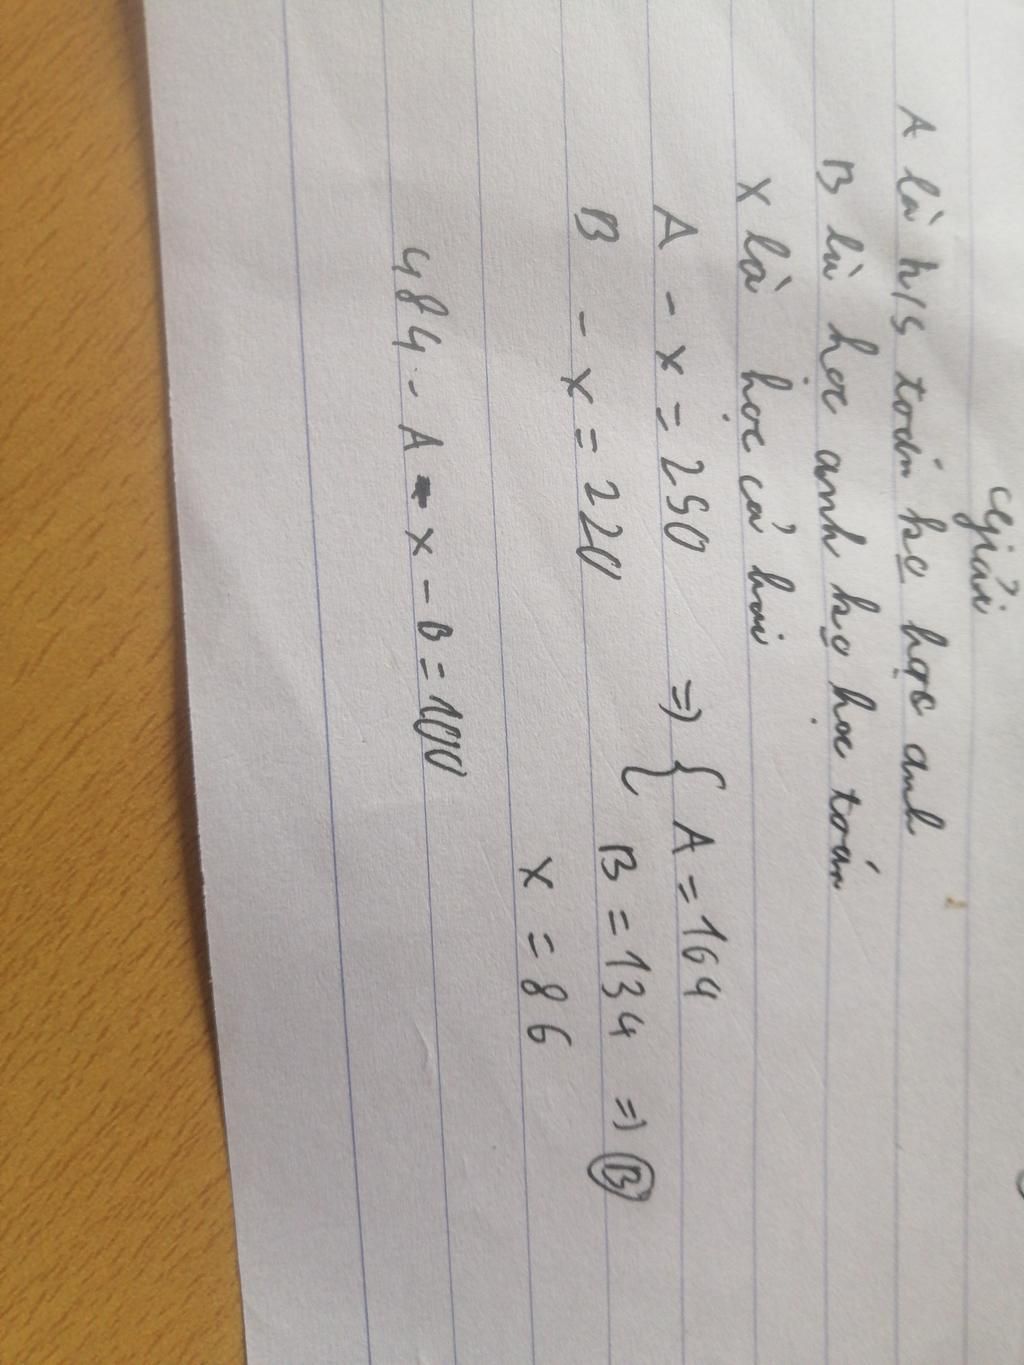 Giải
A là h/s toán ko học anh
B là học anh ko học toán
X là học cả hai
A - x = 250 => { A = 164
B - x = 220 B = 134 => B
X = 86
484 - A - x - B = 100